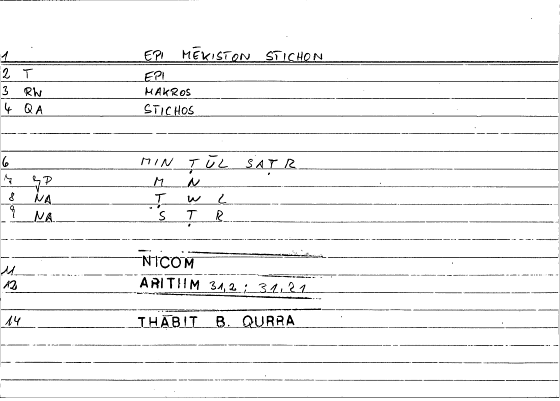 1 EPI MĒKISTON STICHON
2 T EPI
3 RW MAKROS
4 QA STICHOS
6 MIN ṬŪL SAṬR
7 M N
8 NA Ṭ W L
9 NA S Ṭ R
11 NICOM
12 ARITIIM 31,2 : 31,21
14 THĀBIT B. QURRA